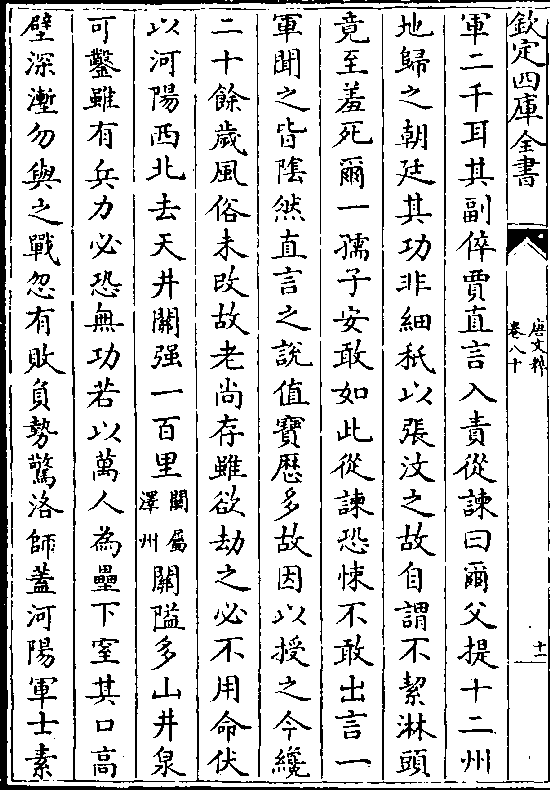 欽定四庫全書
唐文粹
卷八十
十一
軍二千耳其副倅賈直言入責從諫曰爾父提十二州
地歸之朝廷其功非細秖以張汶之故自謂不絜淋頭
竟至羞死爾一孺子安敢如此從諫恐悚不敢出言一
軍聞之皆陰然直言之說值寶歷多故因以授之今纔
二十餘歲風俗未改故老尚存雖欲劫之必不用命伏
以河陽西北去天井關强一百里關屬澤州關隘多山井泉
可鑿雖有兵力必恐無功若以萬人為壘下窒其口高
壁深塹勿與之戰忽有敗負勢驚洛師蓋河陽軍士素